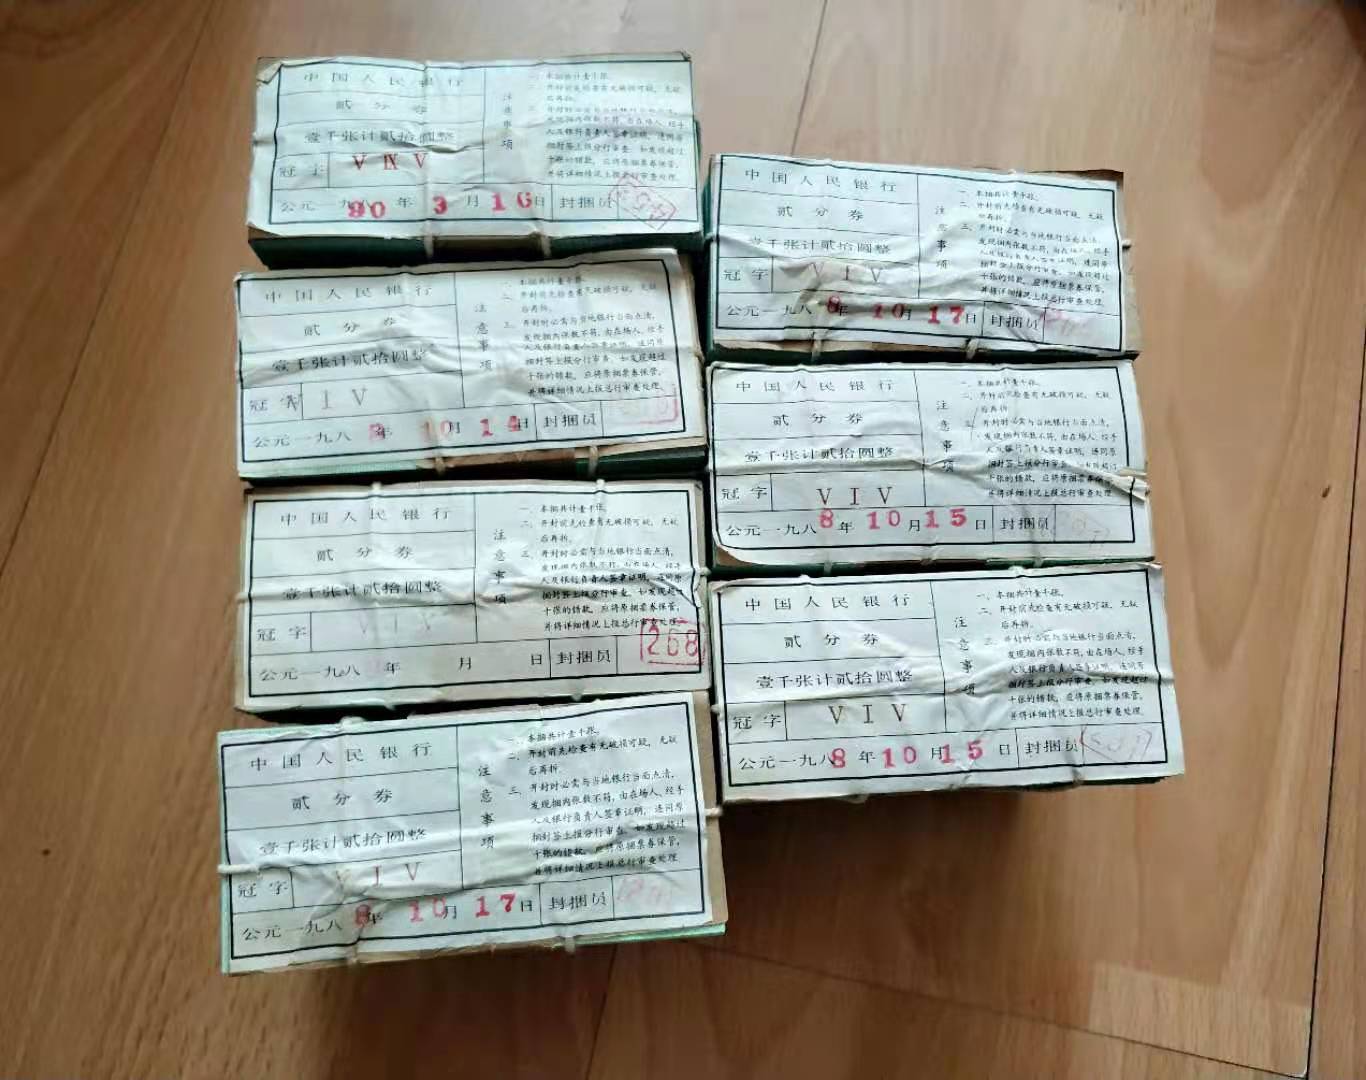 中国人民银行
贰分券
壹千张计贰拾圆整
冠字 V IX V
公元一九 90 年 3 月 16 日 封捆员
注意事项
一、本捆共计壹千张。
二、开封前先检查有无破损可疑，无疑
后再拆。
三、开封时必需与当地银行当面点清，
发现捆内张数不符，由在场人、经手
人及银行负责人签章证明，连同原
捆封签上报分行审查，如发现超过
十张的错款，应将原捆票券保管，
并将详细情况上报总行审查处理。
中国人民银行
贰分券
壹千张计贰拾圆整
冠字 V I V
公元一九八 8 年 10 月 14 日 封捆员
注意事项
一、本捆共计壹千张。
二、开封前先检查有无破损可疑，无疑
后再拆。
三、开封时必需与当地银行当面点清，
发现捆内张数不符，由在场人、经手
人及银行负责人签章证明，连同原
捆封签上报分行审查，如发现超过
十张的错款，应将原捆票券保管，
并将详细情况上报总行审查处理。
中国人民银行
贰分券
壹千张计贰拾圆整
冠字 V I V
公元一九八 年 月 日 封捆员 268
注意事项
一、本捆共计壹千张。
二、开封前先检查有无破损可疑，无疑
后再拆。
三、开封时必需与当地银行当面点清，
发现捆内张数不符，由在场人、经手
人及银行负责人签章证明，连同原
捆封签上报分行审查，如发现超过
十张的错款，应将原捆票券保管，
并将详细情况上报总行审查处理。
中国人民银行
贰分券
壹千张计贰拾圆整
冠字 V I V
公元一九八 8 年 10 月 17 日 封捆员
注意事项
一、本捆共计壹千张。
二、开封前先检查有无破损可疑，无疑
后再拆。
三、开封时必需与当地银行当面点清，
发现捆内张数不符，由在场人、经手
人及银行负责人签章证明，连同原
捆封签上报分行审查，如发现超过
十张的错款，应将原捆票券保管，
并将详细情况上报总行审查处理
中国人民银行
贰分券
壹千张计贰拾圆整
冠字 V I V
公元一九八 8 年 10 月 17 日 封捆员
注意事项
一、本捆共计壹千张。
二、开封前先检查有无破损可疑，无疑
后再拆。
三、开封时必需与当地银行当面点清，
发现捆内张数不符，由在场人、经手
人及银行负责人签章证明，连同原
捆封签上报分行审查，如发现超过
十张的错款，应将原捆票券保管，
并将详细情况上报总行审查处理。
中国人民银行
贰分券
壹千张计贰拾圆整
冠字 V I V
公元一九八 8 年 10 月 15 日 封捆员
注意事项
一、本捆共计壹千张。
二、开封前先检查有无破损可疑，无疑
后再拆。
三、开封时必需与当地银行当面点清，
发现捆内张数不符，由在场人、经手
人及银行负责人签章证明，连同原
捆封签上报分行审查，如发现超过
十张的错款，应将原捆票券保管，
并将详细情况上报总行审查处理。
中国人民银行
贰分券
壹千张计贰拾圆整
冠字 V I V
公元一九八 8 年 10 月 15 日 封捆员
注意事项
一、本捆共计壹千张。
二、开封前先检查有无破损可疑，无疑
后再拆。
三、开封时必需与当地银行当面点清，
发现捆内张数不符，由在场人、经手
人及银行负责人签章证明，连同原
捆封签上报分行审查，如发现超过
十张的错款，应将原捆票券保管，
并将详细情况上报总行审查处理。